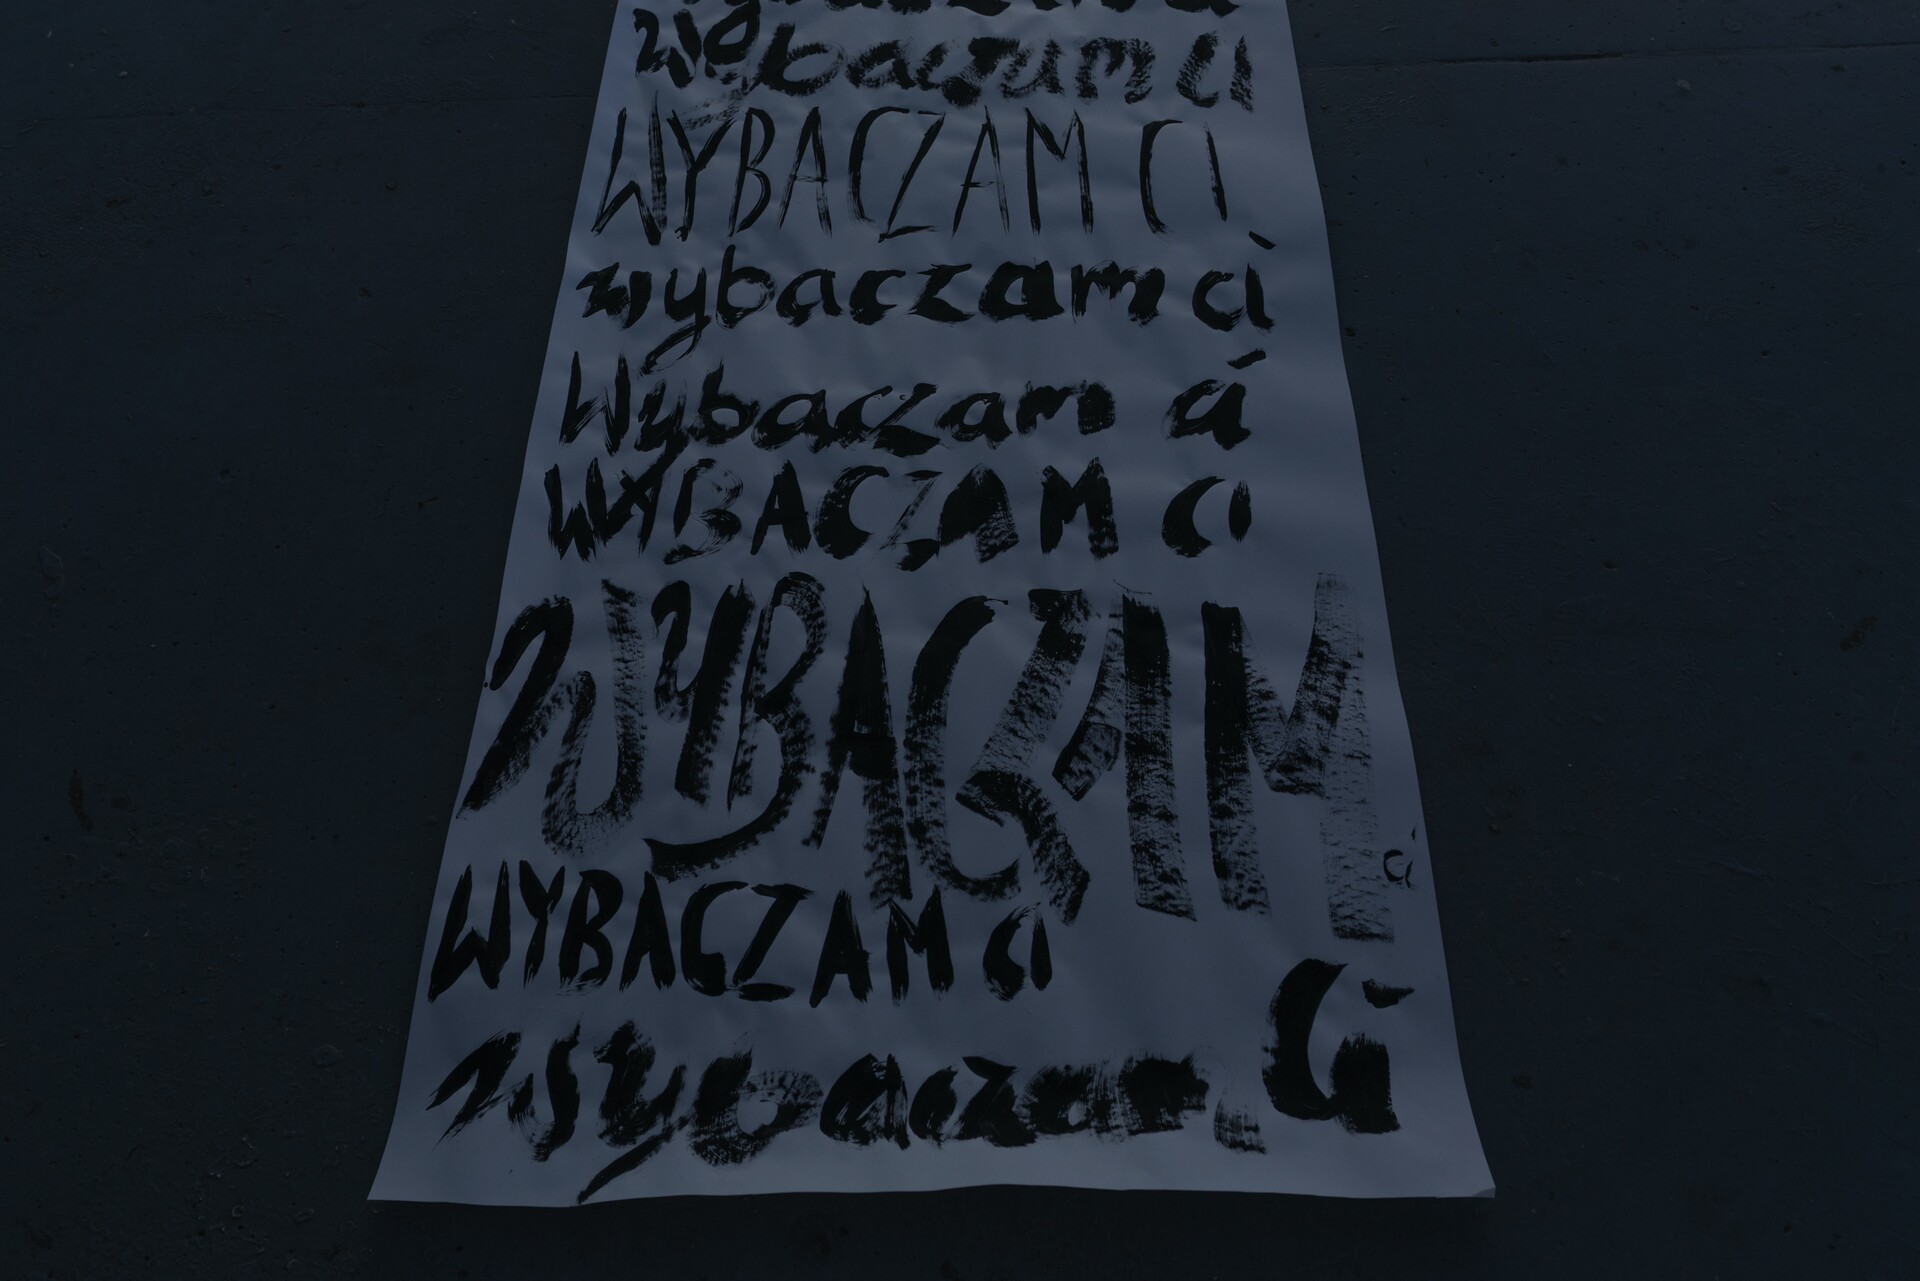 wybaczam ci
WYBACZAM CI
wybaczam ci
Wybaczam ci
WYBACZAM CI
WYBACZAM ci
WYBACZAM CI
wybaczam Ci